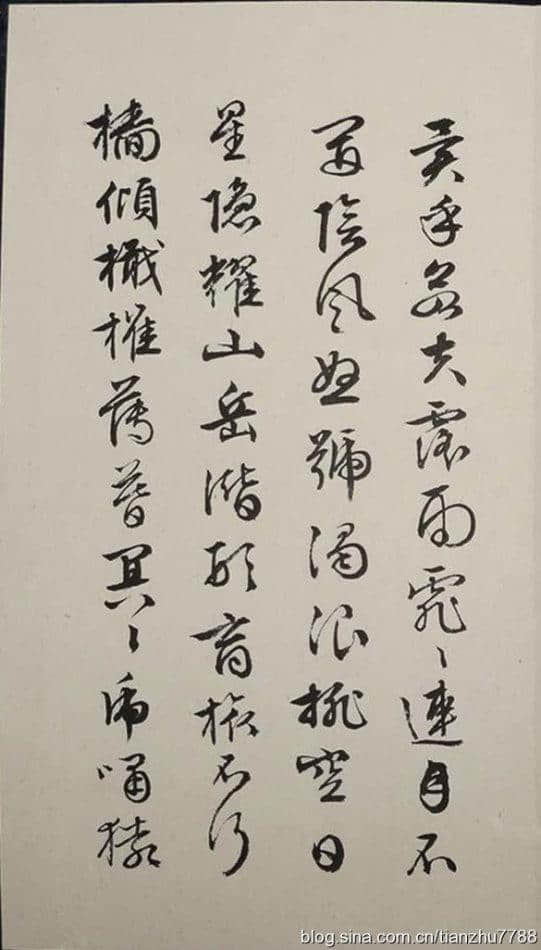 異乎若夫霪雨霏〻連月不
開陰風怒號濁浪排空日
星隱耀山岳潛形商旅不行
檣傾檝摧薄暮冥〻虎嘯猿
blog.sina.com.cn/tianzhu7788